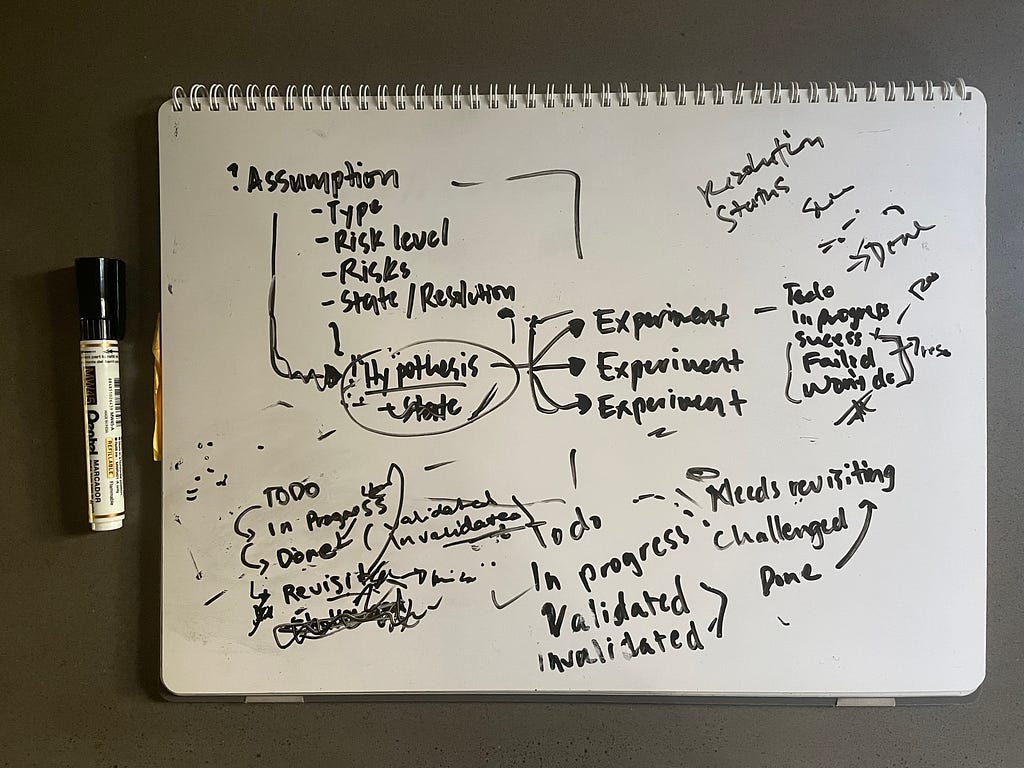 ? Assumption
- Type
- Risk level
- Risks
- State / Resolution
Hypothesis
- State
Experiment
Experiment
Experiment
Resolution
Status
Done
- Todo
In progress
success
Failed
TODO
In Progress
Done
Revisit
Validated
Invalidated
Todo
In progress
Validated
invalidated
Needs revisiting
challenged
Done
Pentel
REFILLABLE
MARCADOR